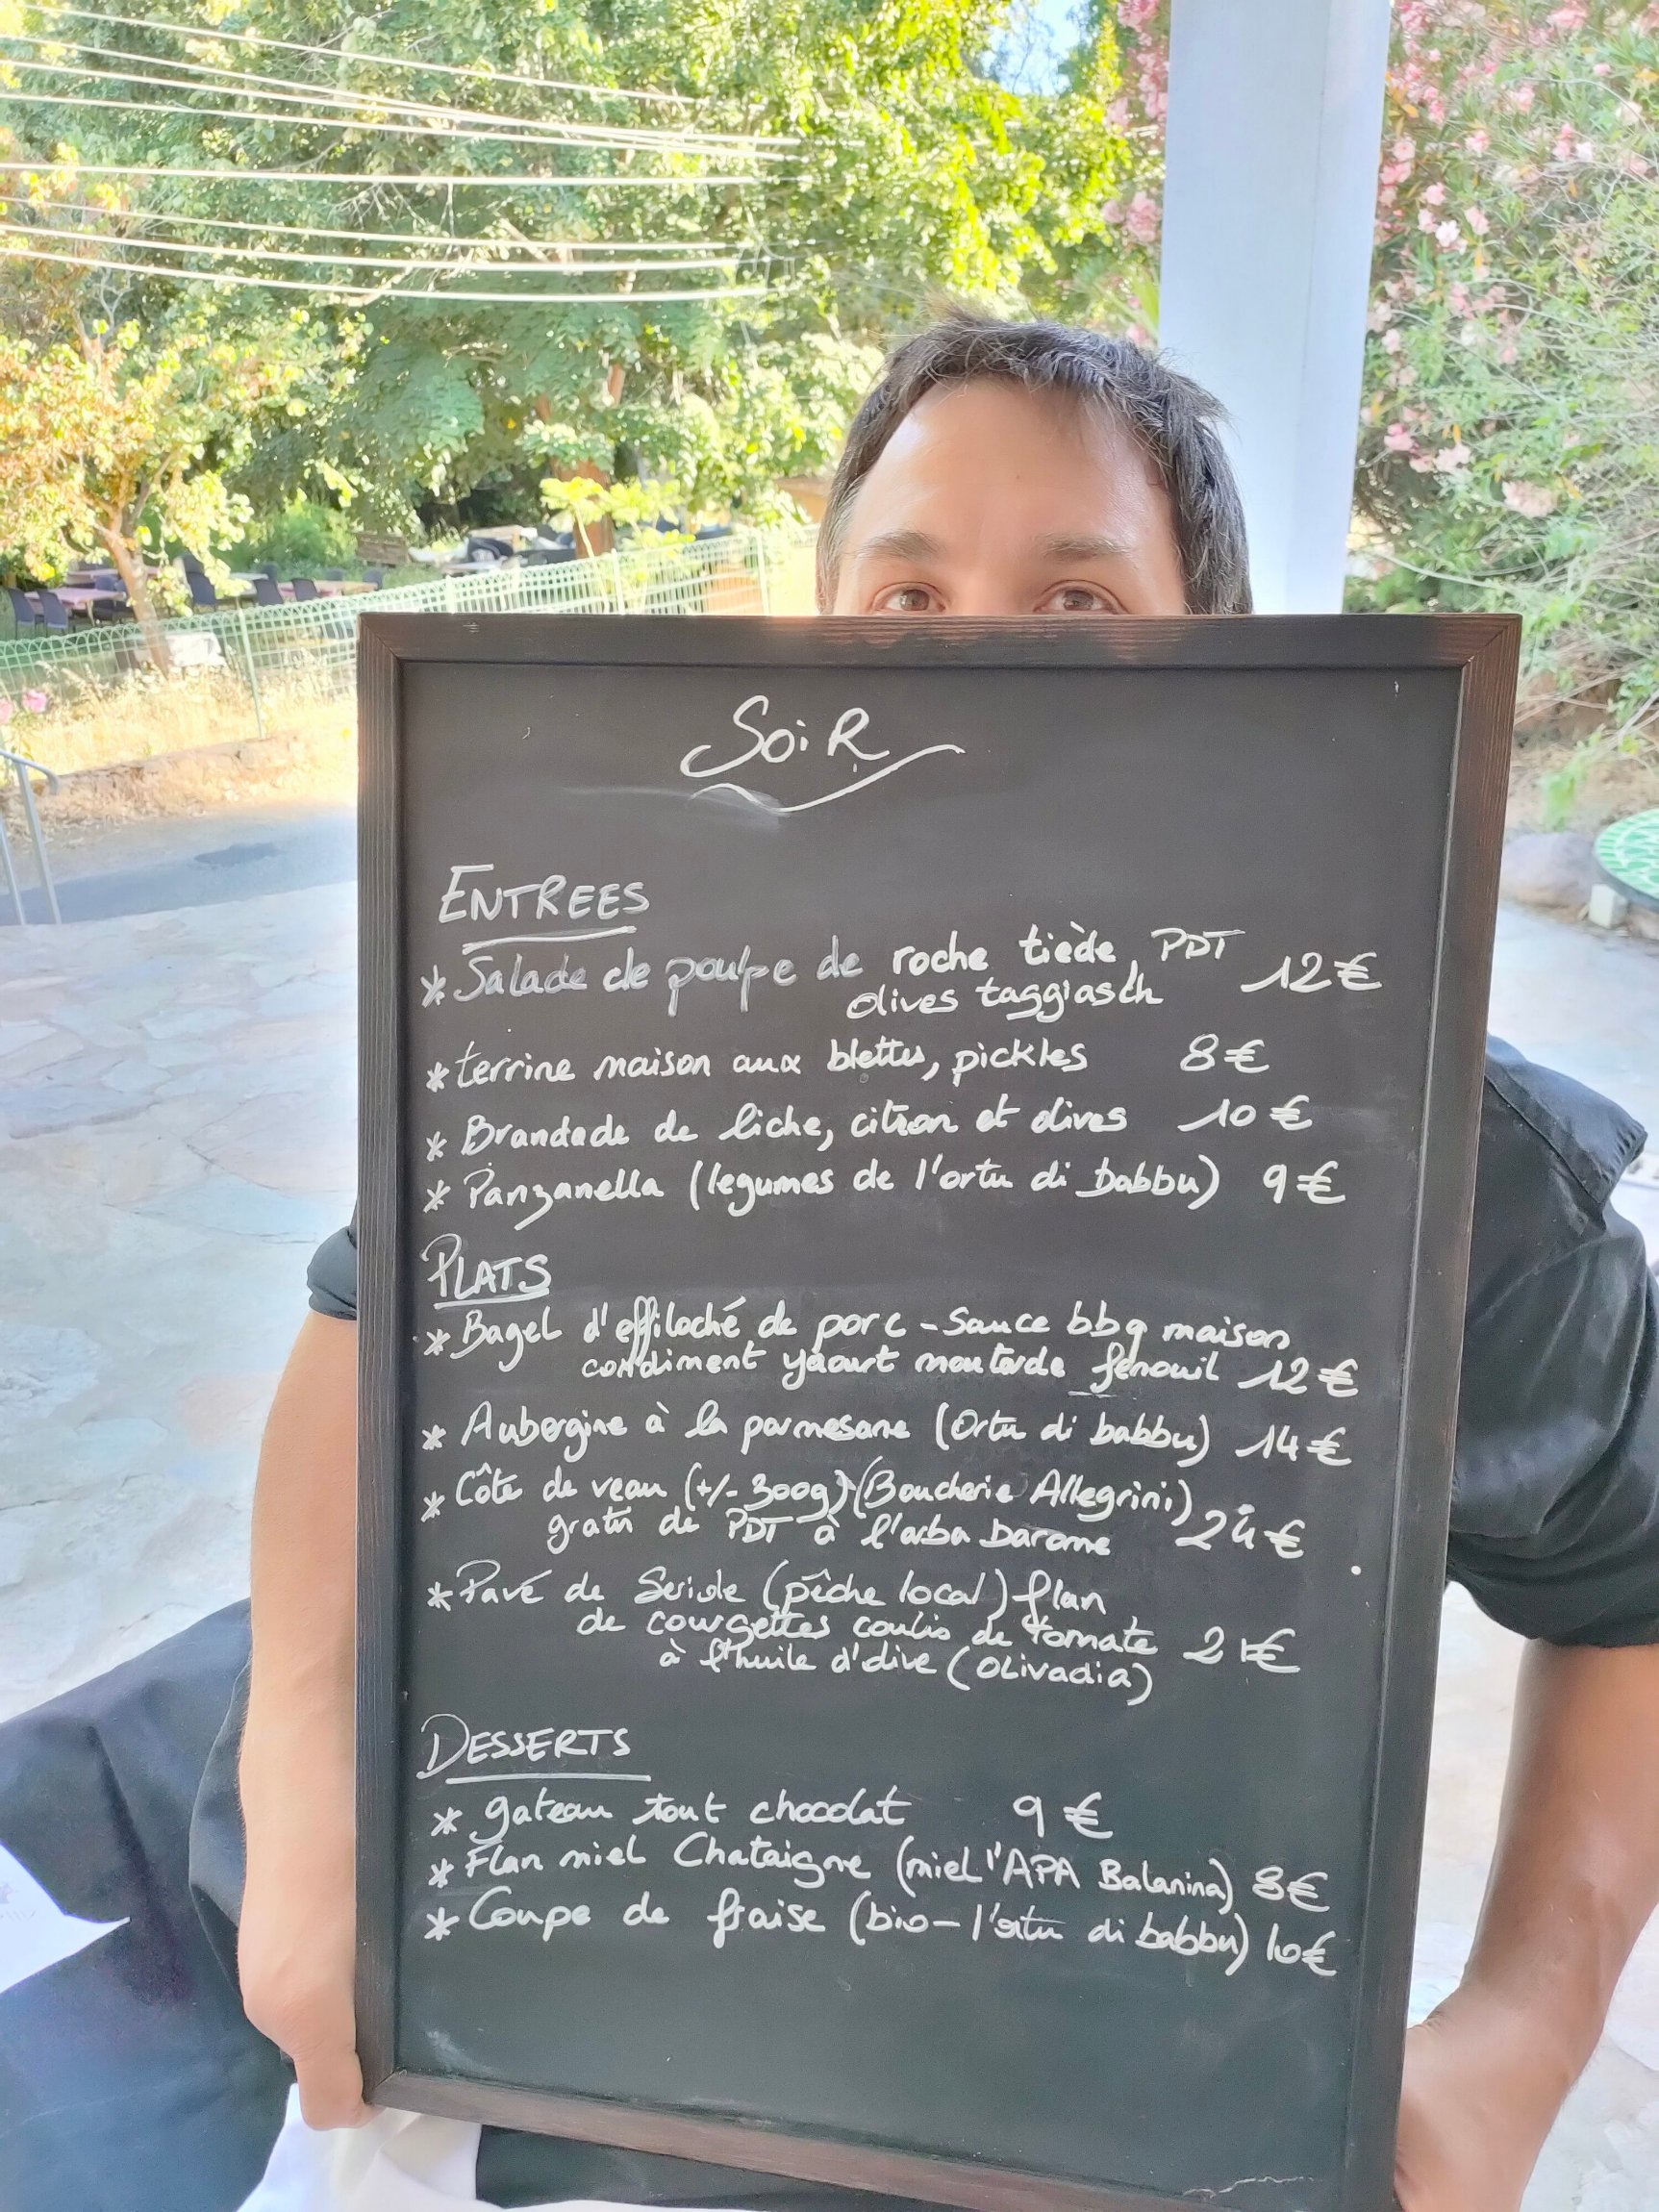 SOIR
ENTREES
* Salade de poulpe de roche tiède, PDT 12€
olives taggiasch
* terrine maison aux blettes, pickles 8€
* Brandade de liche, citron et olives 10€
* Panzanella (legumes de l'ortu di babbu) 9€
PLATS
* Bagel d'effiloché de porc - Sauce bbq maison
condiment yaourt moutarde fenouil 12€
* Aubergine à la parmesane (Ortu di babbu) 14€
* Côte de veau (+/- 300g) (Boucherie Allegrini)
gratin de PDT à l'arba barona 24€
* Pavé de Seriole (pêche local) flan
de courgettes coulis de tomate 21€
à l'huile d'olive (OLIVADIA)
DESSERTS
* gateau tout chocolat 9€
* Flan miel Chataigne (miel l'APA Balanina) 8€
* Coupe de fraise (bio - l'ortu di babbu) 10€